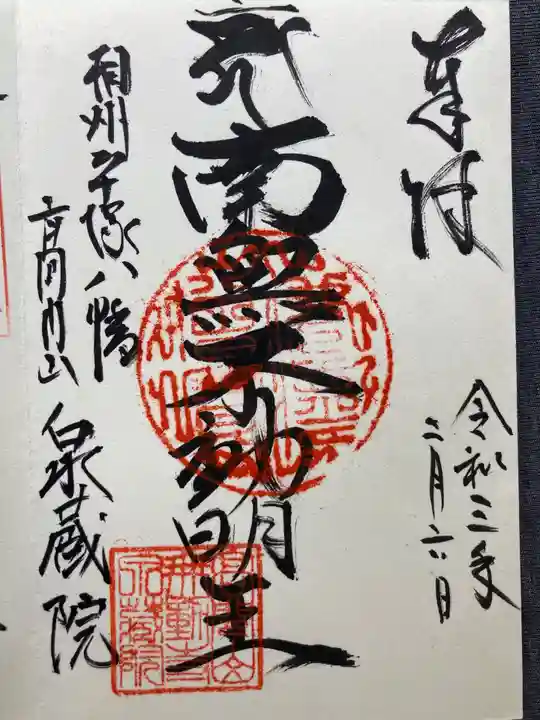 奉拝
令和三年
二月六日
南無大不動明王
相州平塚八幡
高間山 泉蔵院